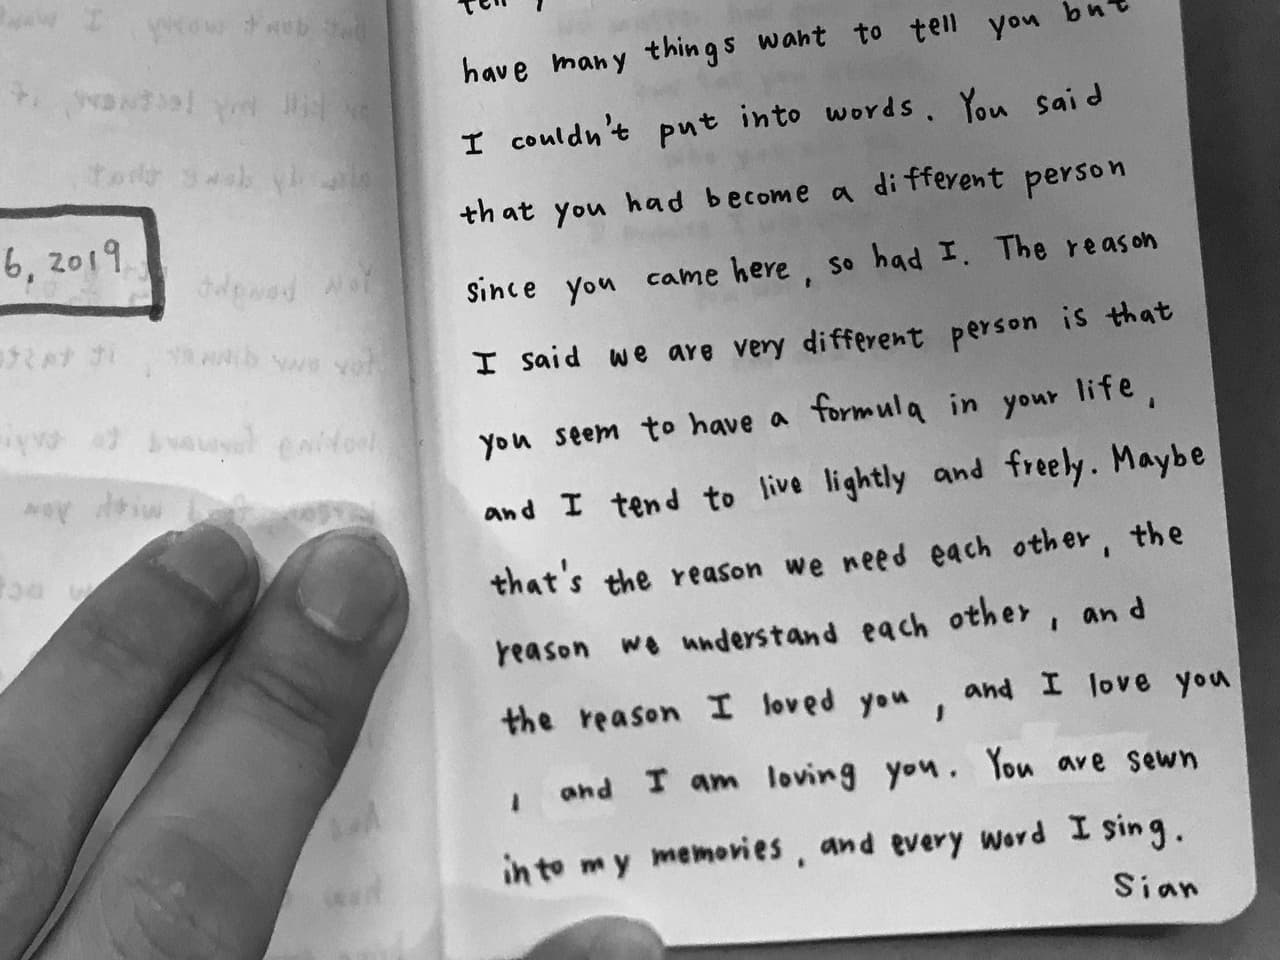 6, 2019
tell
have many things want to tell you but
I couldn't put into words. You said
that you had become a different person
since you came here, so had I. The reason
I said we are very different person is that
you seem to have a formula in your life,
and I tend to live lightly and freely. Maybe
that's the reason we need each other, the
reason we understand each other, and
the reason I loved you, and I love you
, and I am loving you. You are sewn
into my memories, and every word I sing.
Sian